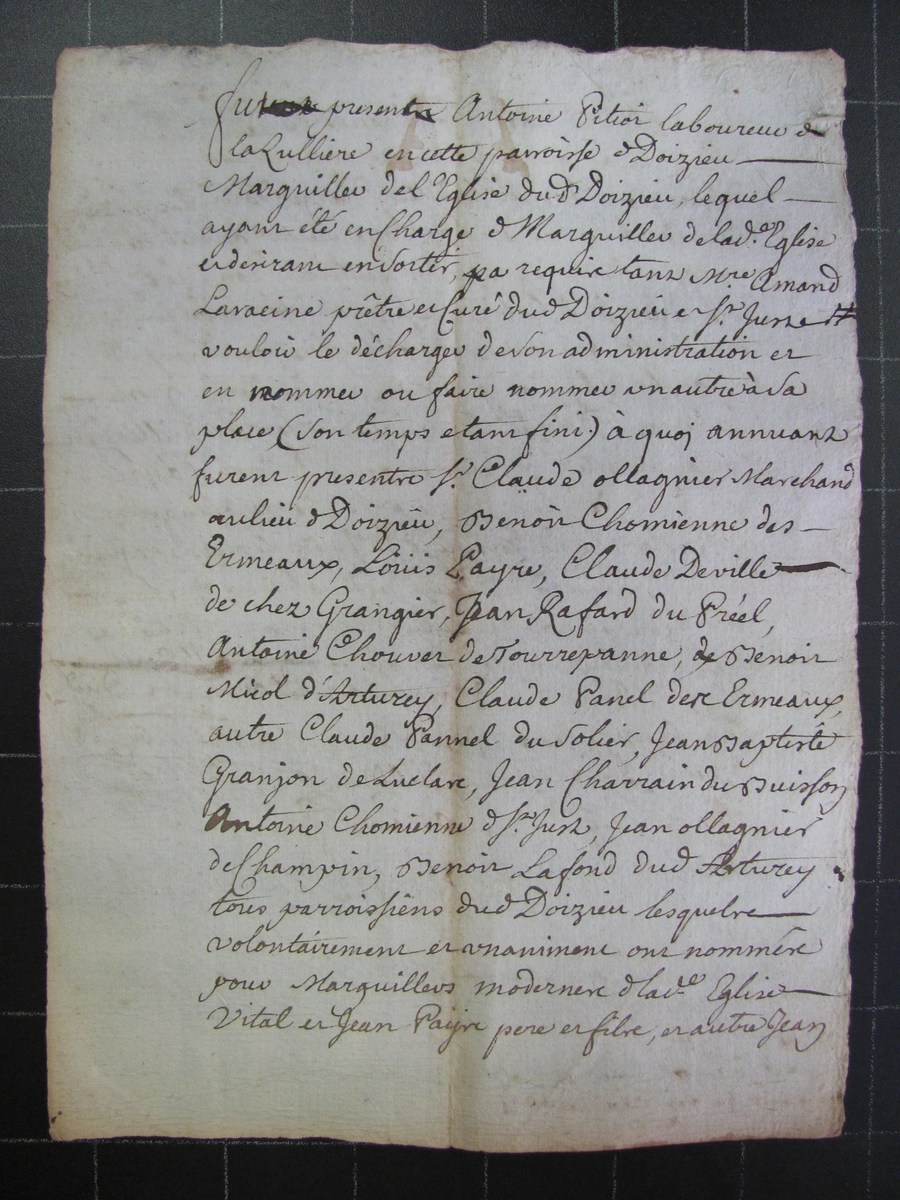 furent presents Antoine Pitiot laboureur de
la Rulliere en cette parroisse de Doizieu
Marguiller de l'Eglise dud Doizieu, lequel
ayant été en Charge de Marguiller de lad.e Eglise
et desirant en sortir, a requis tant Mre Amand
Laracine prêtre et Curé dud Doizieu et St. Just
vouloir le décharger de son administration et
en nommer ou faire nommer un autre à sa
place (son temps etant fini.) à quoi annuant
furent presents Sr. Claude Ollagnier Marchand
au lieu de Doizieu, Benoit Chomienne des
Ermeaux, Loüis Payre, Claude Deville
de chez Grangier, Jean Rafard du Préel,
Antoine Chouvet de Tourrepanne, de Benoit
Micol d'Arturey, Claude Panel des Ermeaux,
autre Claude Pannel du Solier, Jean Baptiste
Granjon de Luclare, Jean Charrain du Buisson
Antoine Chomienne de St. Just, Jean Ollagnier
de Champin, Benoit Lafond dud Arturey
tous parroissiens dud Doizieu lesquels
volontairement et unaniment ont nommés
pour Marguillers modernes de lad.e Eglise
Vital et Jean Payre pere et fils, et autre Jean